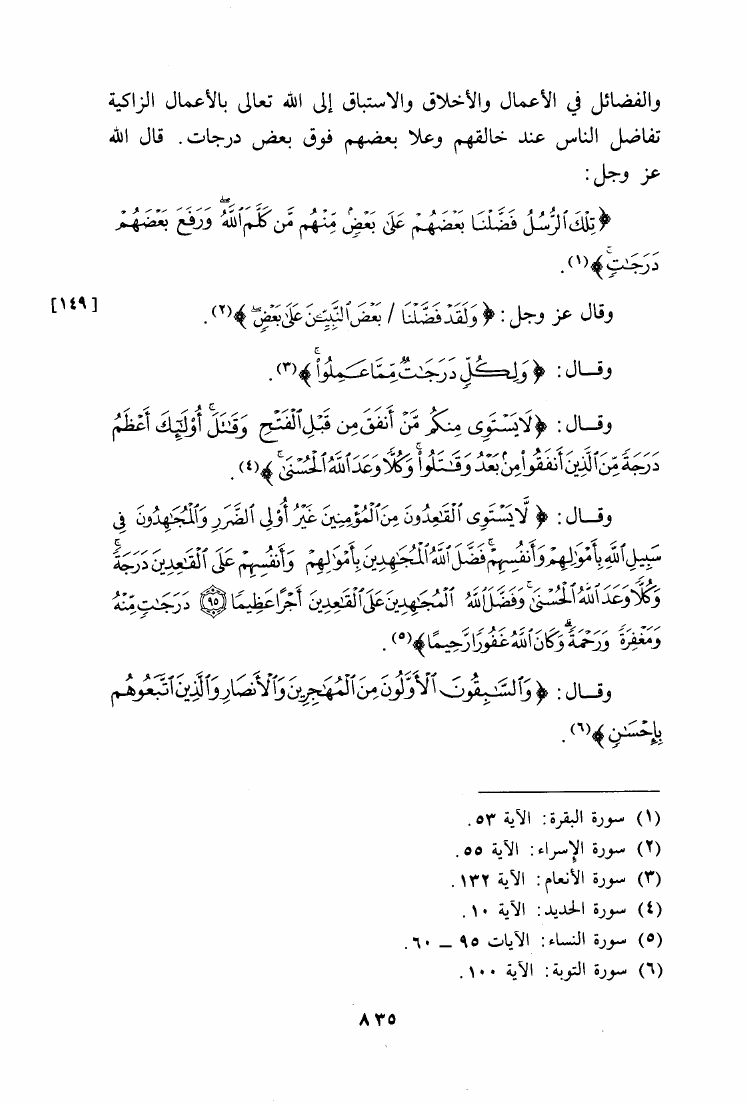 والفضائل في الأعمال والأخلاق والاستباق إلى الله تعالى بالأعمال الزاكية
تفاضل الناس عند خالقهم وعلا بعضهم فوق بعض درجات. قال الله
عز وجل:
﴿تِلْكَ ٱلرُّسُلُ فَضَّلْنَا بَعْضَهُمْ عَلَىٰ بَعْضٍ مِّنْهُم مَّن كَلَّمَ ٱللَّهُ وَرَفَعَ بَعْضَهُمْ
دَرَجَٰتٍ﴾(١).
وقال عز وجل: ﴿وَلَقَدْ فَضَّلْنَا / بَعْضَ ٱلنَّبِيِّـۧنَ عَلَىٰ بَعْضٍ﴾(٢). [١٤٩]
وقال: ﴿وَلِكُلٍّ دَرَجَٰتٌ مِّمَّا عَمِلُوا۟﴾(٣).
وقال: ﴿لَا يَسْتَوِى مِنكُم مَّنْ أَنفَقَ مِن قَبْلِ ٱلْفَتْحِ وَقَٰتَلَ أُو۟لَٰٓئِكَ أَعْظَمُ
دَرَجَةً مِّنَ ٱلَّذِينَ أَنفَقُوا۟ مِنۢ بَعْدُ وَقَٰتَلُوا۟ وَكُلًّا وَعَدَ ٱللَّهُ ٱلْحُسْنَىٰ﴾(٤).
وقال: ﴿لَّا يَسْتَوِى ٱلْقَٰعِدُونَ مِنَ ٱلْمُؤْمِنِينَ غَيْرُ أُو۟لِى ٱلضَّرَرِ وَٱلْمُجَٰهِدُونَ فِى
سَبِيلِ ٱللَّهِ بِأَمْوَٰلِهِمْ وَأَنفُسِهِمْ فَضَّلَ ٱللَّهُ ٱلْمُجَٰهِدِينَ بِأَمْوَٰلِهِمْ وَأَنفُسِهِمْ عَلَى ٱلْقَٰعِدِينَ دَرَجَةً
وَكُلًّا وَعَدَ ٱللَّهُ ٱلْحُسْنَىٰ وَفَضَّلَ ٱللَّهُ ٱلْمُجَٰهِدِينَ عَلَى ٱلْقَٰعِدِينَ أَجْرًا عَظِيمًا ٩٥ دَرَجَٰتٍ مِّنْهُ
وَمَغْفِرَةً وَرَحْمَةً وَكَانَ ٱللَّهُ غَفُورًا رَّحِيمًا﴾(٥).
وقال: ﴿وَٱلسَّٰبِقُونَ ٱلْأَوَّلُونَ مِنَ ٱلْمُهَٰجِرِينَ وَٱلْأَنصَارِ وَٱلَّذِينَ ٱتَّبَعُوهُم
بِإِحْسَٰنٍ﴾(٦).
(١) سورة البقرة: الآية ٥٣.
(٢) سورة الإسراء: الآية ٥٥.
(٣) سورة الأنعام: الآية ١٣٢.
(٤) سورة الحديد: الآية ١٠.
(٥) سورة النساء: الآيات ٩٥ – ٦٠.
(٦) سورة التوبة: الآية ١٠٠.
٨٣٥